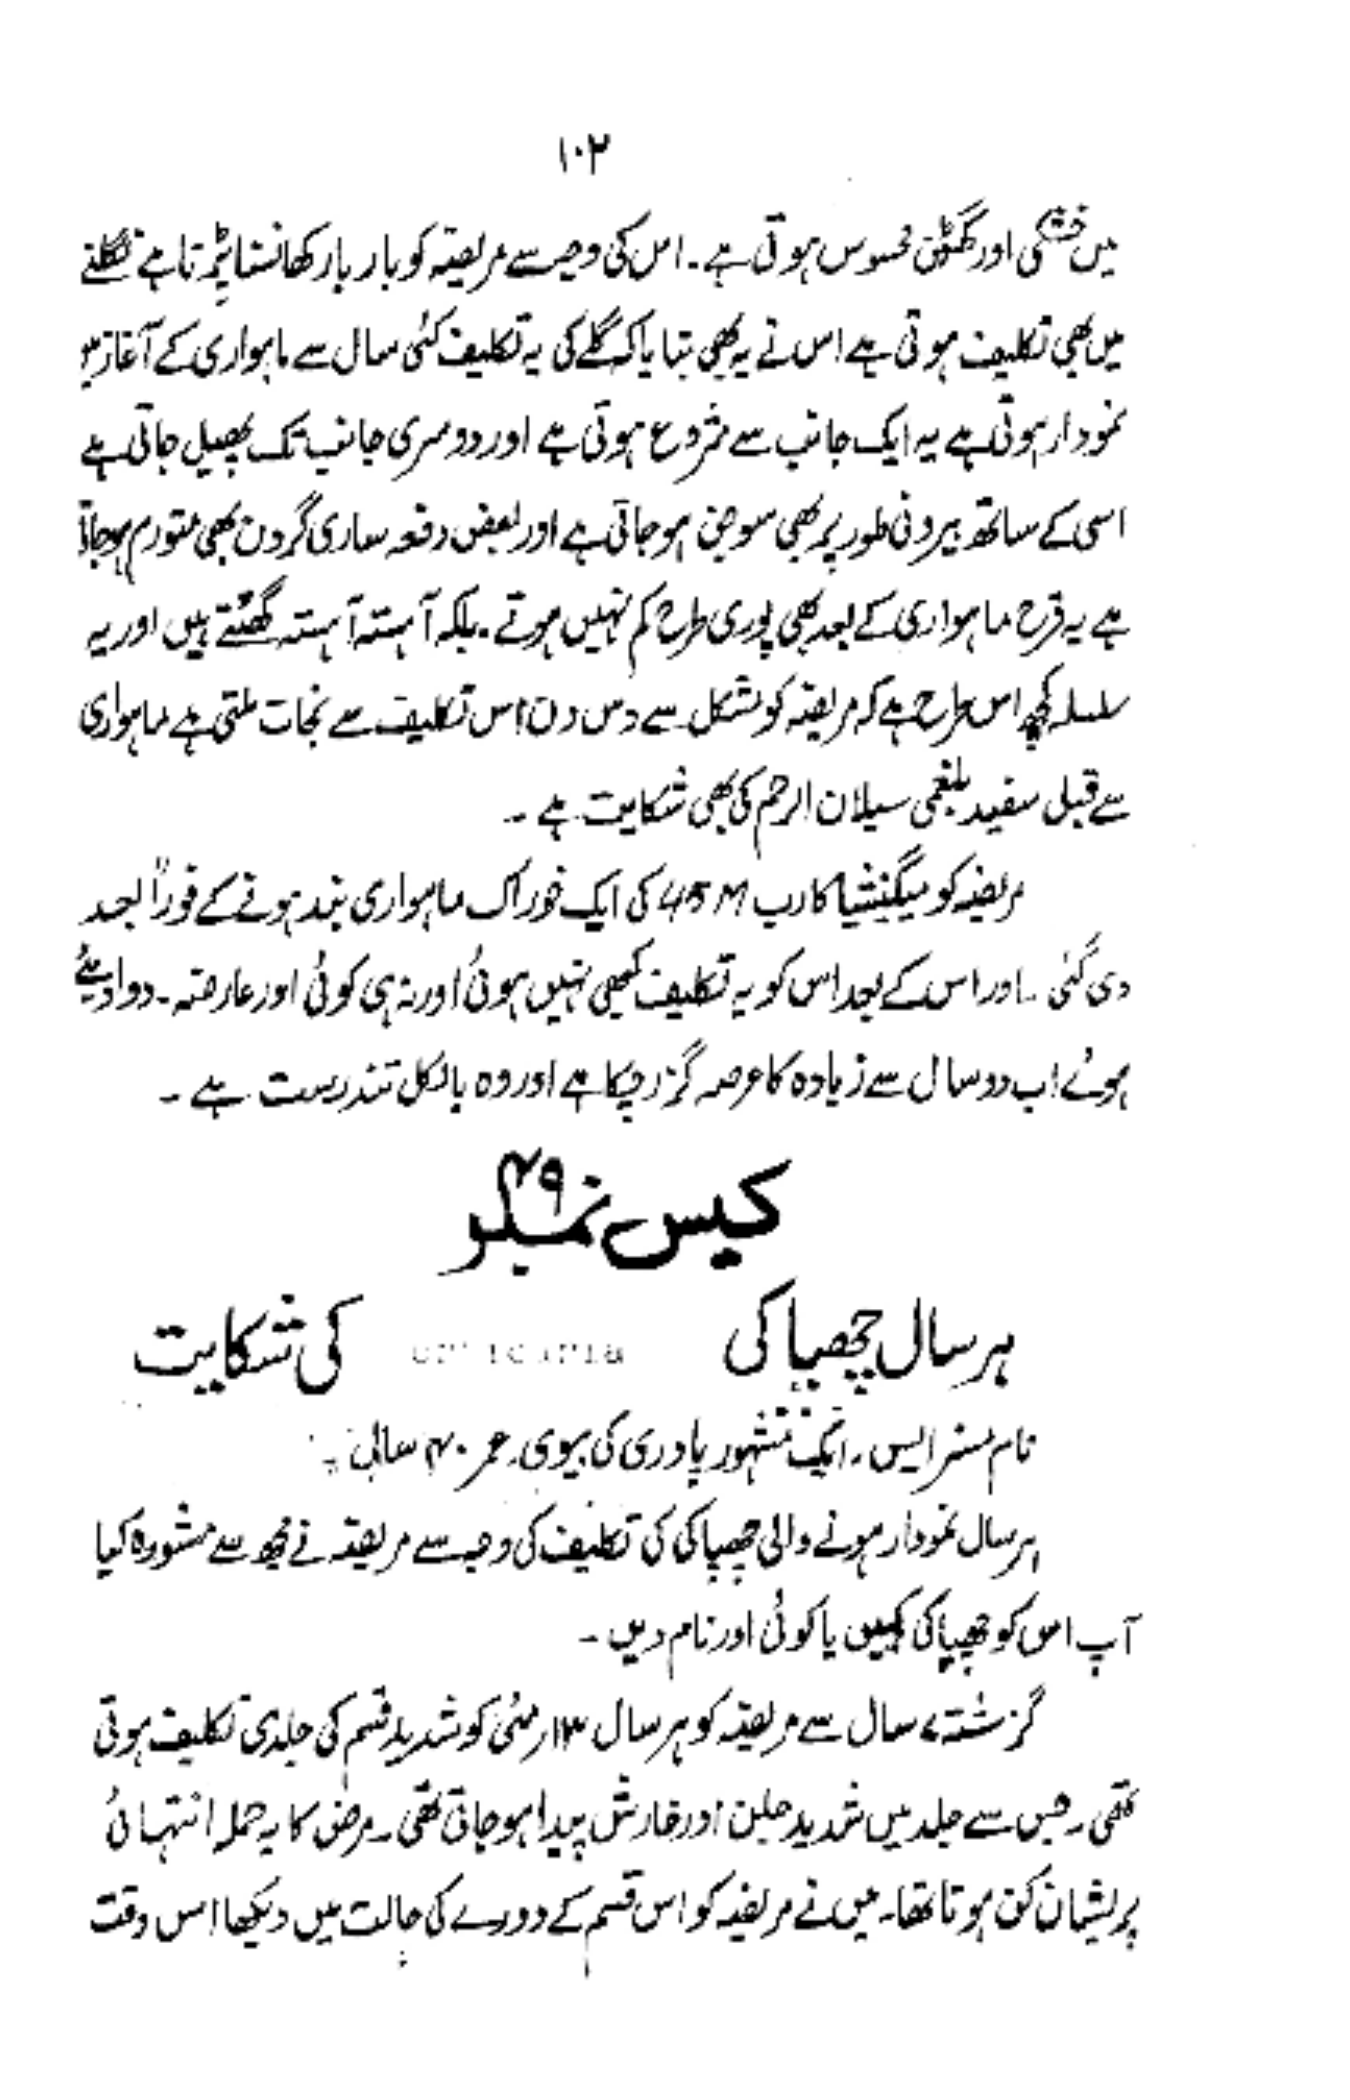 ۱۰۲
میں خشکی اور گھٹن محسوس ہوتی ہے۔ اس کی وجہ سے مریضہ کو بار بار کھانسنا پڑتا ہے نگلنے
میں بھی تکلیف ہوتی ہے اس نے یہ بھی بتایا کہ گلے کی یہ تکلیف کئی سال سے ماہواری کے آغاز میں
نمودار ہوتی ہے یہ ایک جانب سے شروع ہوتی ہے اور دوسری جانب تک پھیل جاتی ہے
اسی کے ساتھ بیرونی طور پر بھی سوجن ہو جاتی ہے اور بعض دفعہ ساری گردن بھی متورم ہو جاتی
ہے یہ قرح ماہواری کے بعد بھی پوری طرح کم نہیں ہوتے۔ بلکہ آہستہ آہستہ گھٹتے ہیں اور یہ
سلسلہ کچھ اس طرح ہے کہ مریضہ کو مشکل سے دس دن اس تکلیف سے نجات ملتی ہے ماہواری
سے قبل سفید بلغمی سیلان الرحم کی بھی شکایت ہے ۔
مریضہ کو میگنیشیا کارب 45 M کی ایک خوراک ماہواری بند ہونے کے فوراً بعد
دی گئی ۔ اور اس کے بعد اس کو یہ تکلیف کبھی نہیں ہوئی اور نہ ہی کوئی اور عارضہ ۔ دوا دیئے
ہوئے اب دو سال سے زیادہ کا عرصہ گزر چکا ہے اور وہ بالکل تندرست ہے ۔
کیس نمبر ۴۹
ہر سال چھپاکی urticaria کی شکایت
نام مسز ایس ۔ ایک مشہور پادری کی بیوی۔ عمر ۴۰ سال ۔
ہر سال نمودار ہونے والی چھپاکی کی تکلیف کی وجہ سے مریضہ نے مجھ سے مشورہ کیا
آپ اس کو چھپاکی کہیں یا کوئی اور نام دیں ۔
گزشتہ ۷ سال سے مریضہ کو ہر سال ۱۳؍ مئی کو شدید قسم کی جلدی تکلیف ہوتی
تھی ۔ جس سے جلد میں شدید جلن اور خارش پیدا ہو جاتی تھی ۔ مرض کا یہ حملہ انتہائی
پریشان کن ہوتا تھا۔ میں نے مریضہ کو اس قسم کے دورے کی حالت میں دیکھا اس وقت